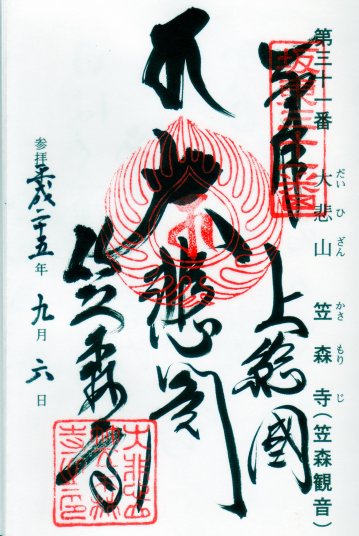 第三十一番 大悲山 笠森寺(笠森観音)
だい ひ ざん かさ もり じ
奉拝
坂東三十一番
上総國
大悲閣
笠森寺
参拝 平成二十五年 九月 六日